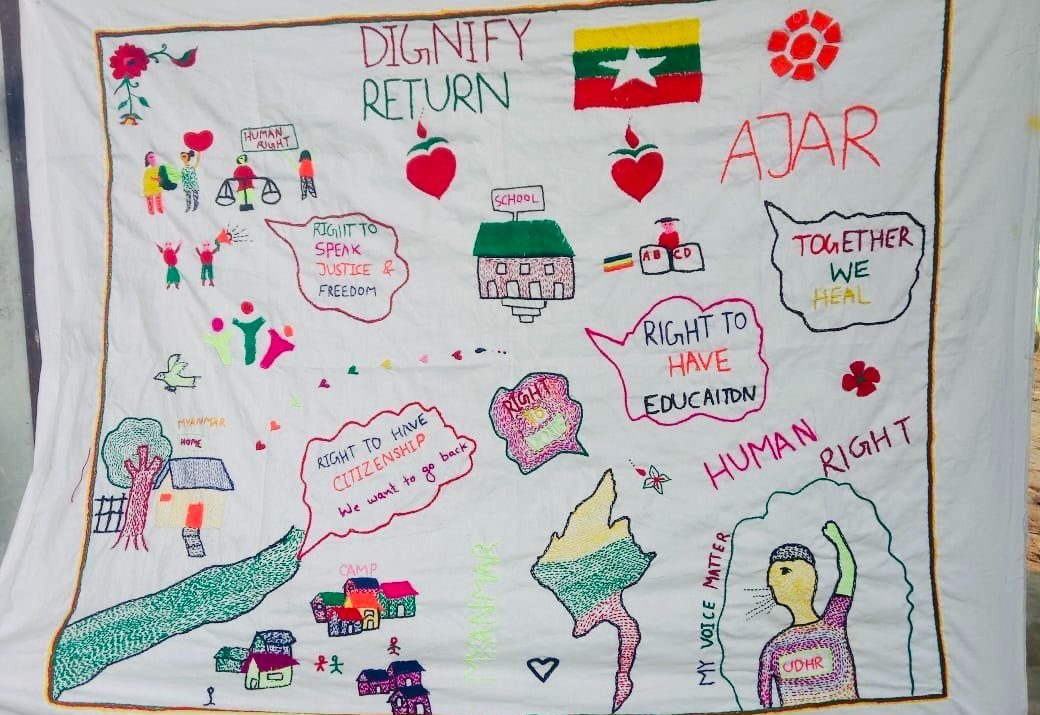 DIGNIFY
RETURN
AJAR
HUMAN
RIGHT
SCHOOL
RIGHT TO
SPEAK
JUSTICE &
FREEDOM
AB CD
TOGETHER
WE
HEAL
RIGHT TO
HAVE
EDUCAITON
RIGHT
TO
MYANMAR
HOME
RIGHT TO HAVE
CITIZENSHIP
We want to go back
HUMAN
RIGHT
CAMP
MYANMAR
MY VOICE MATTER
UDHR